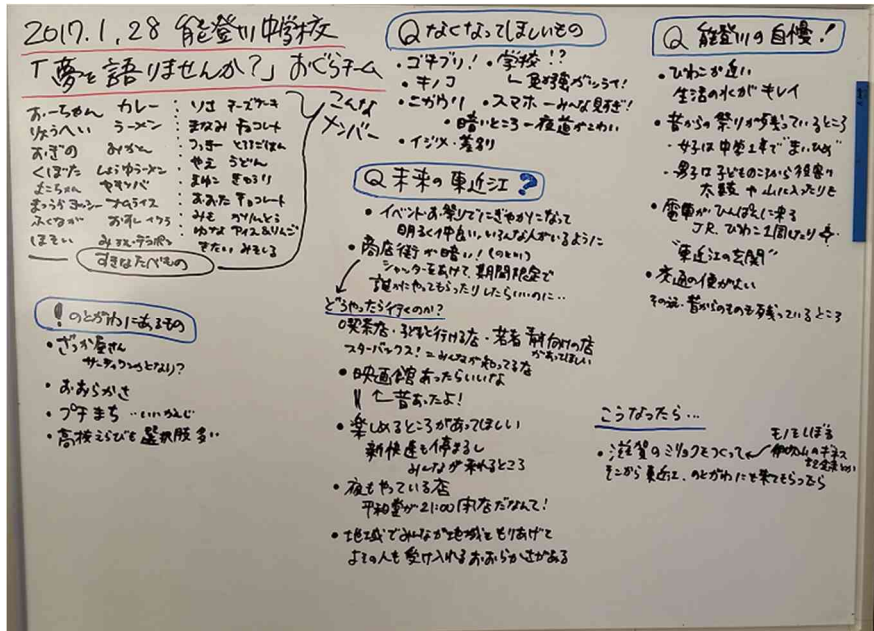 2017.1.28 能登川中学校
「夢を語りませんか?」おぐらチーム
こんな
メンバー
おーちゃん カレー
りょうへい ラーメン
おぎの みかん
くぼた しょうゆラーメン
ふくなが
ほそい
: りさ チーズケーキ
: まなみ チョコレート
: つっきー とろろごはん
: やえ うどん
: まゆこ きゅうり
: おおた チョコレート
: みも かりんとう
: ゆな アイス&りんご
きたい みそしる
すきなたべもの
! のとがわにあるもの
・ざっか屋さん
となり?
・おおらかさ
・プチまち ‥いいかんじ
・高校えらびも選択肢多い
Q なくなってほしいもの
・ゴキブリ! ・学校!?
・キノコ 勉強がツライ!
・にがウリ ・スマホーみんな見すぎ!
・暗いところー夜道がこわい
・イジメ・差別
Q 未来の東近江?
・イベントお祭りでにぎやかになって
明るく仲良い。いろんな人がいるように
・商店街が暗い!(のとがわ)
シャッターをあけて、期間限定で
誰かにやってもらったりしたらいいのに‥
どうやったら行くのか?
○喫茶店・子どもと行ける店・若者向けの店
があってほしい
スターバックス!=みんなが知ってる店
・映画館あったらいいな
昔あったよ!
・楽しめるところがあってほしい
新快速も停まるし
みんなが来れるところ
・夜もやっている店
平和堂が21:00閉店だなんて!
・地域でみんなが地域をもりあげて
よその人も受け入れるおおらかさがある
Q 能登川の自慢!
・びわこが近い
生活の水がキレイ
・昔からの祭りが残っているところ
・女子は中学2年で"まいひめ"
・男子は子どものころから役割り
太鼓や山に入ったりも
・電車がひんぱんに来る
JR、びわこ1周したり
"東近江の玄関"
・交通の便がよい
その証・昔からのものも残っているところ
こうなったら…
モノをしぼる
・滋賀のミリョクをつくって
伊吹山のギネス
記録とか
そこから東近江、のとがわにも来てもらったら